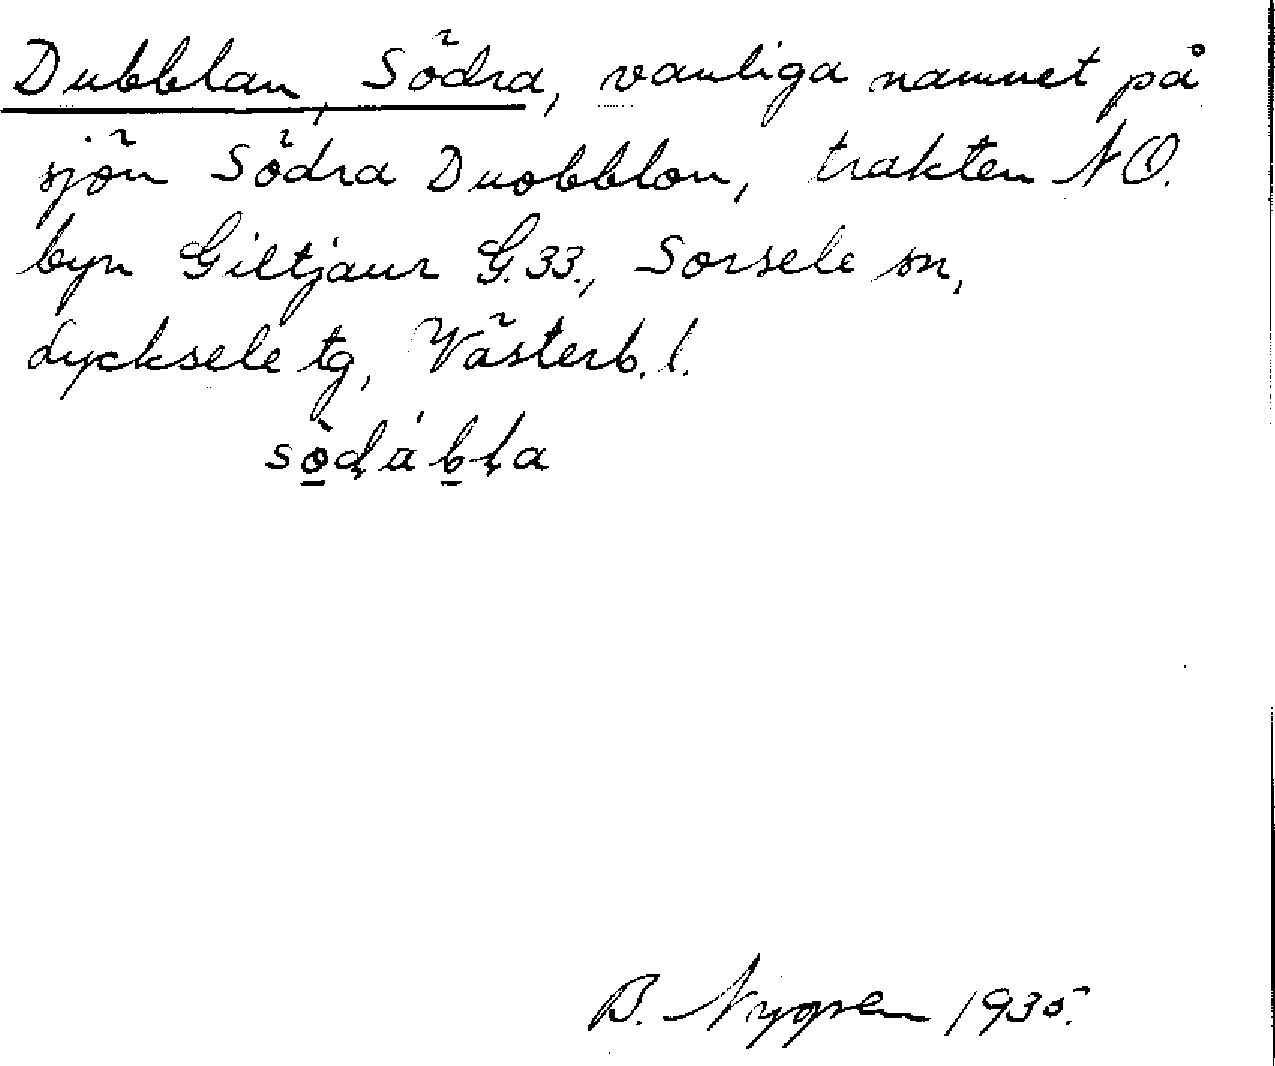 Dubblan, Södra, vanliga namnet på
sjön Södra Duobblon, trakten NO.
byn Giltjaur G.33., Sorsele sn,
Lycksele tg, Västerb. l.
B. Nygren 1935.